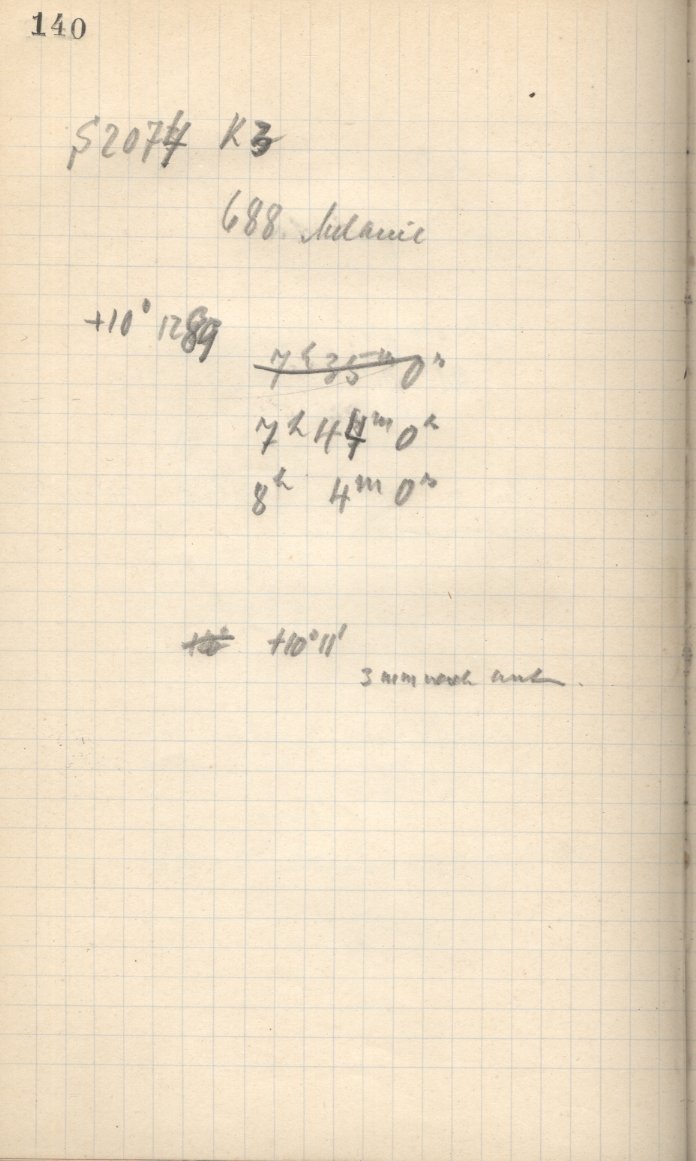 140
S2074 K3
688 Melanie
+10° 1289
7h 35m 0s
7h 44m 0s
8h 4m 0s
+10° 11'
3 mm nach